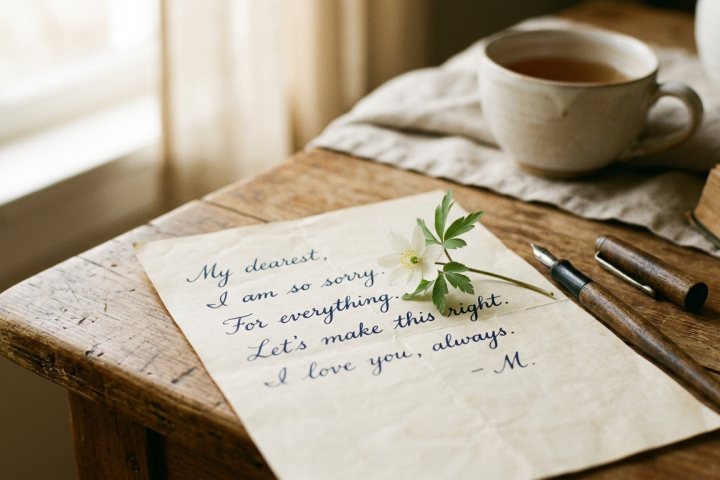 My dearest,
I am so sorry.
For everything.
Let's make this right.
I love you, always.
– M.